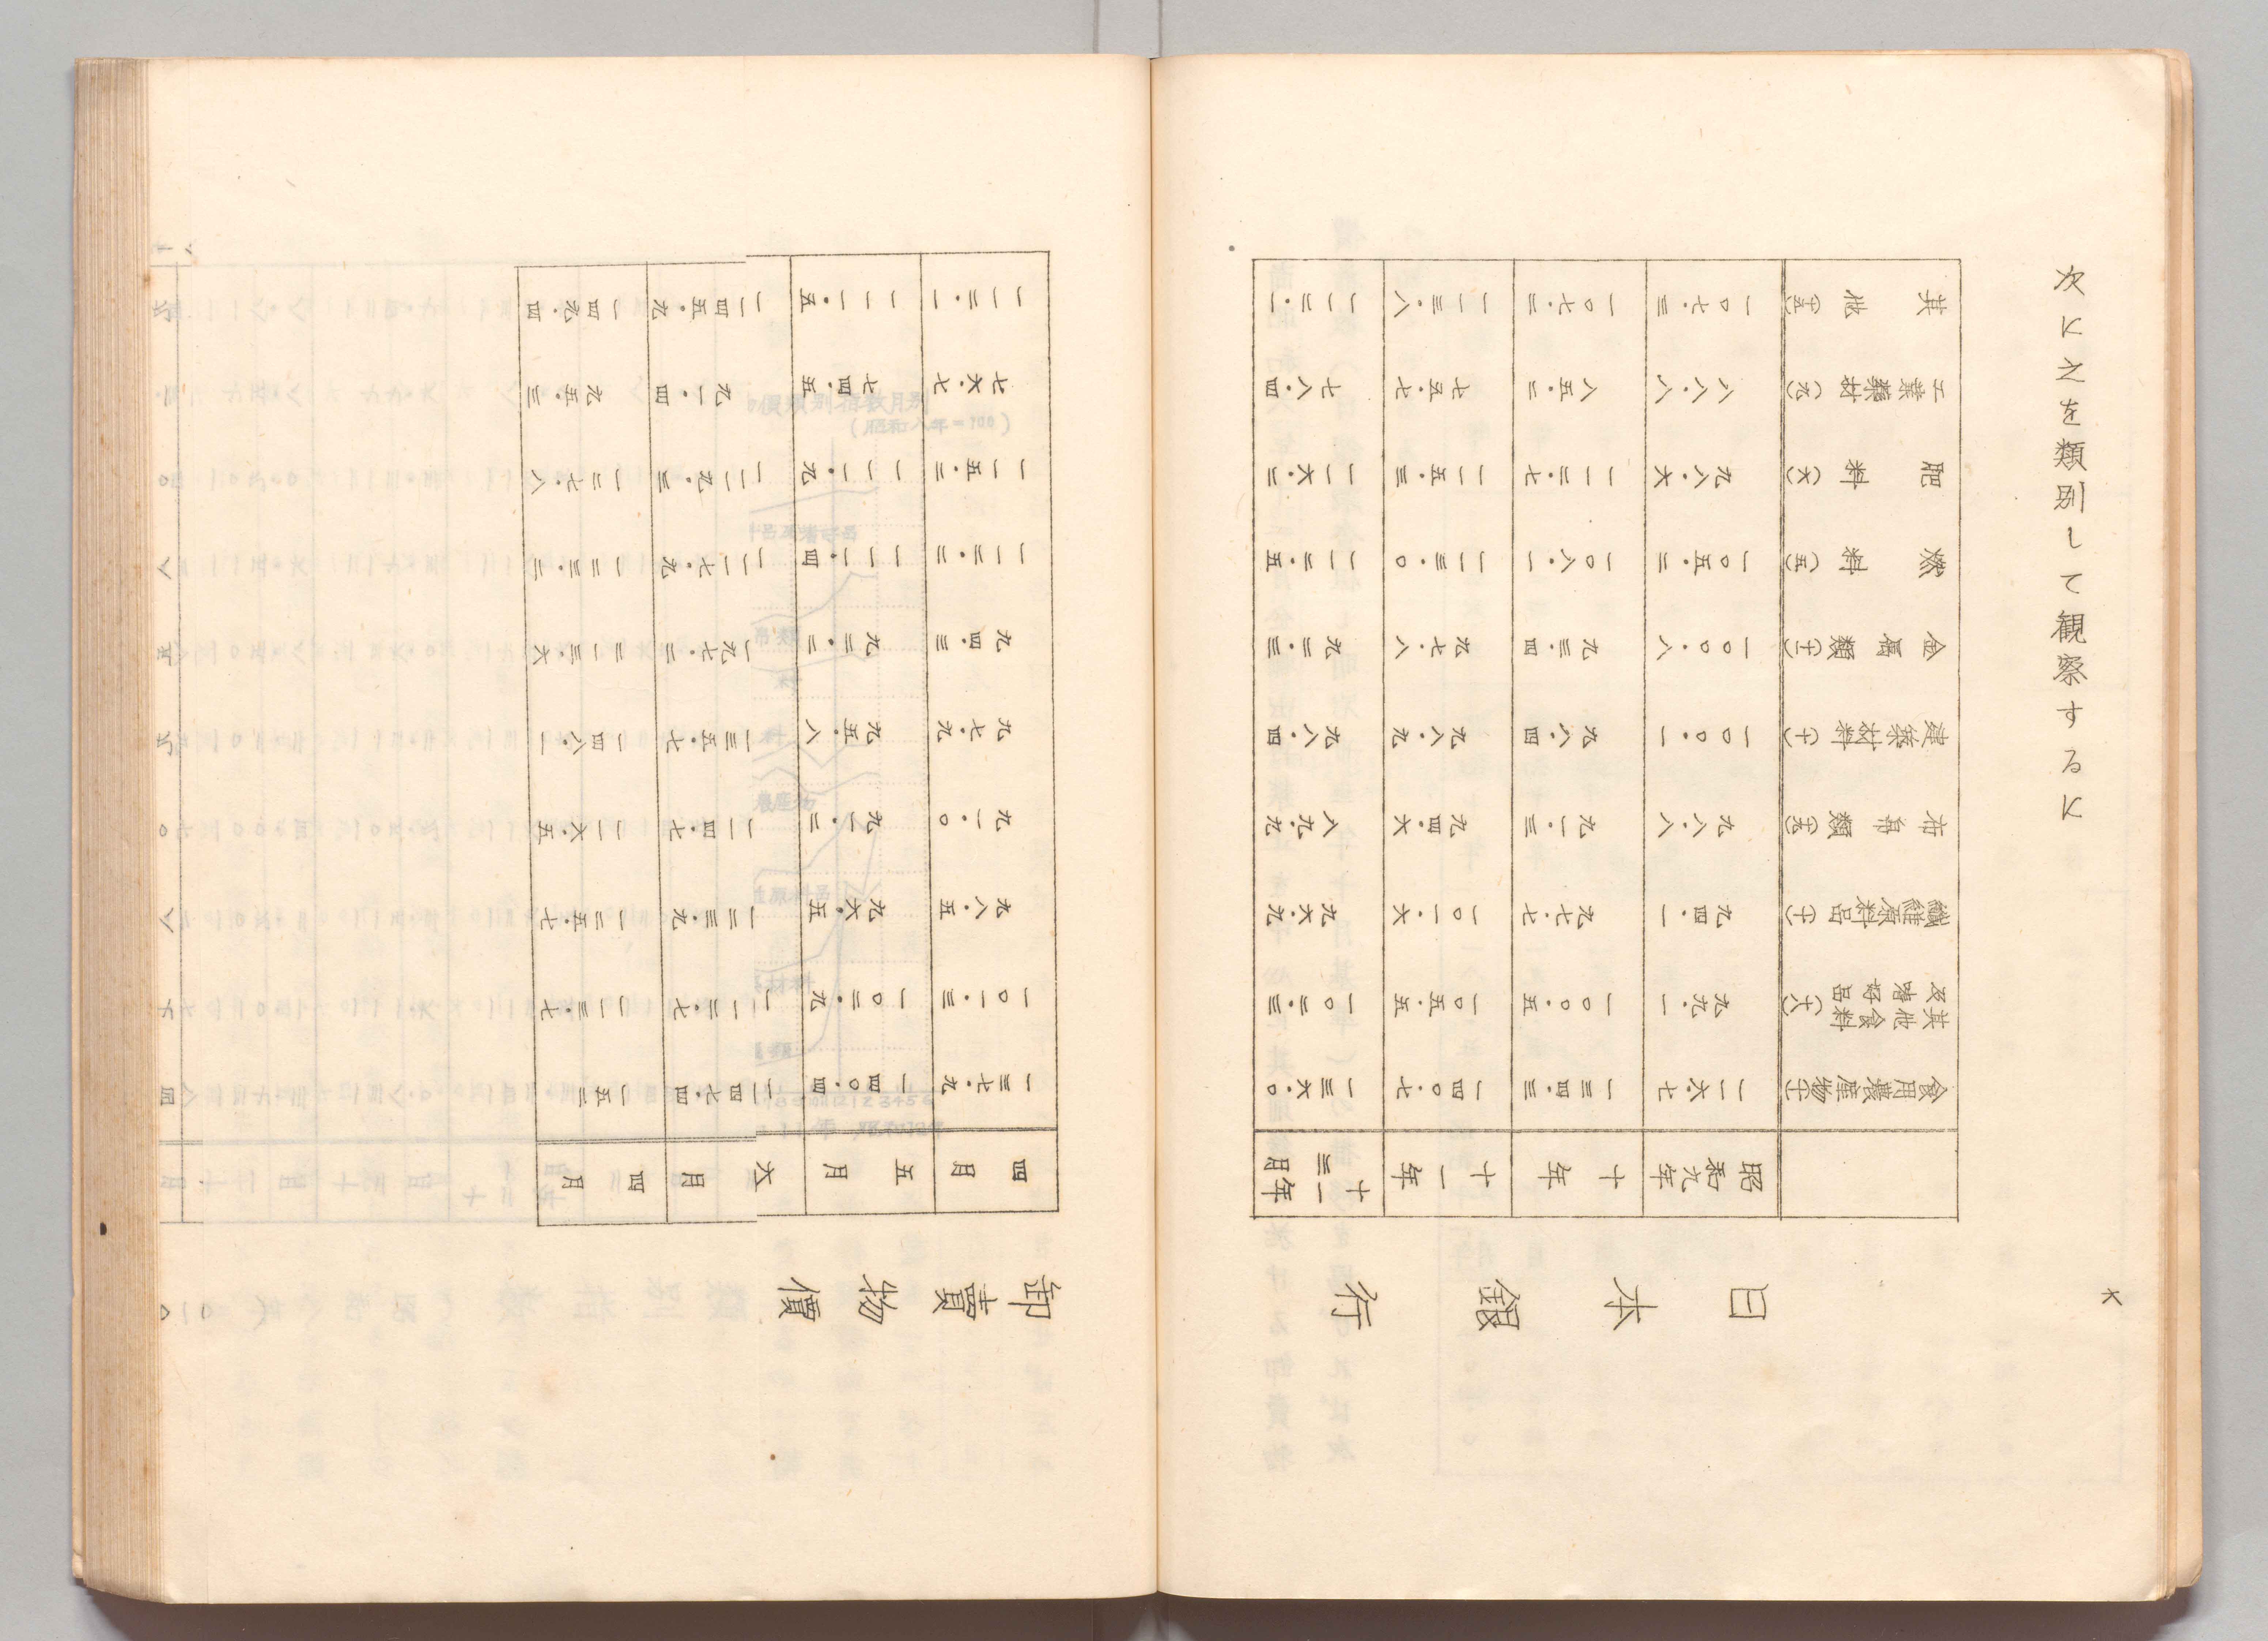 六
次に之を類別して観察するに
日本銀行
卸賣物價
食用農産物(七)
其他食料及嗜好品(六)
纖維原料品(十)
布帛類(五)
建築材料(十)
金属類(十一)
燃料(五)
肥料(六)
工業藥材(九)
其他(五)
昭和九年 一一六・七 九九・一 九四・一 九八・八 一〇〇・一 一〇〇・八 一〇五・二 九八・六 八八・八 一〇七・三
十年 一三四・三 一〇〇・五 九七・七 九一・三 九八・四 九三・四 一〇八・一 一一二・七 八五・二 一〇七・二
十一年 一四〇・七 一〇五・五 一〇一・六 九四・六 九八・九 九七・八 一一三・〇 一一五・三 七五・七 一一三・八
十一年三月 一三六・〇 一〇二・三 九六・九 八九・九 九八・四 九二・三 一一二・五 一一六・二 七八・四 一一二・一
四月 一三七・九 一〇一・三 九八・五 九一・〇 九七・九 九四・三 一一二・二 一一五・二 七六・七 一一二・一
五月 一四〇・四 一〇二・九 九六・五 九一・二 九五・八 九二・二 一一一・四 一一一・九 七四・五 一一一・五
月 四七・四 一二・七 二三・九 一四・七 三五・七 九七・二 一七・九 一九・三 九一・四 四五・九
四月 一五一・二 一一三・七 一二五・七 一一六・五 一四八・一 二一三・六 一二三・二 一二七・八 九五・三 一四九・四